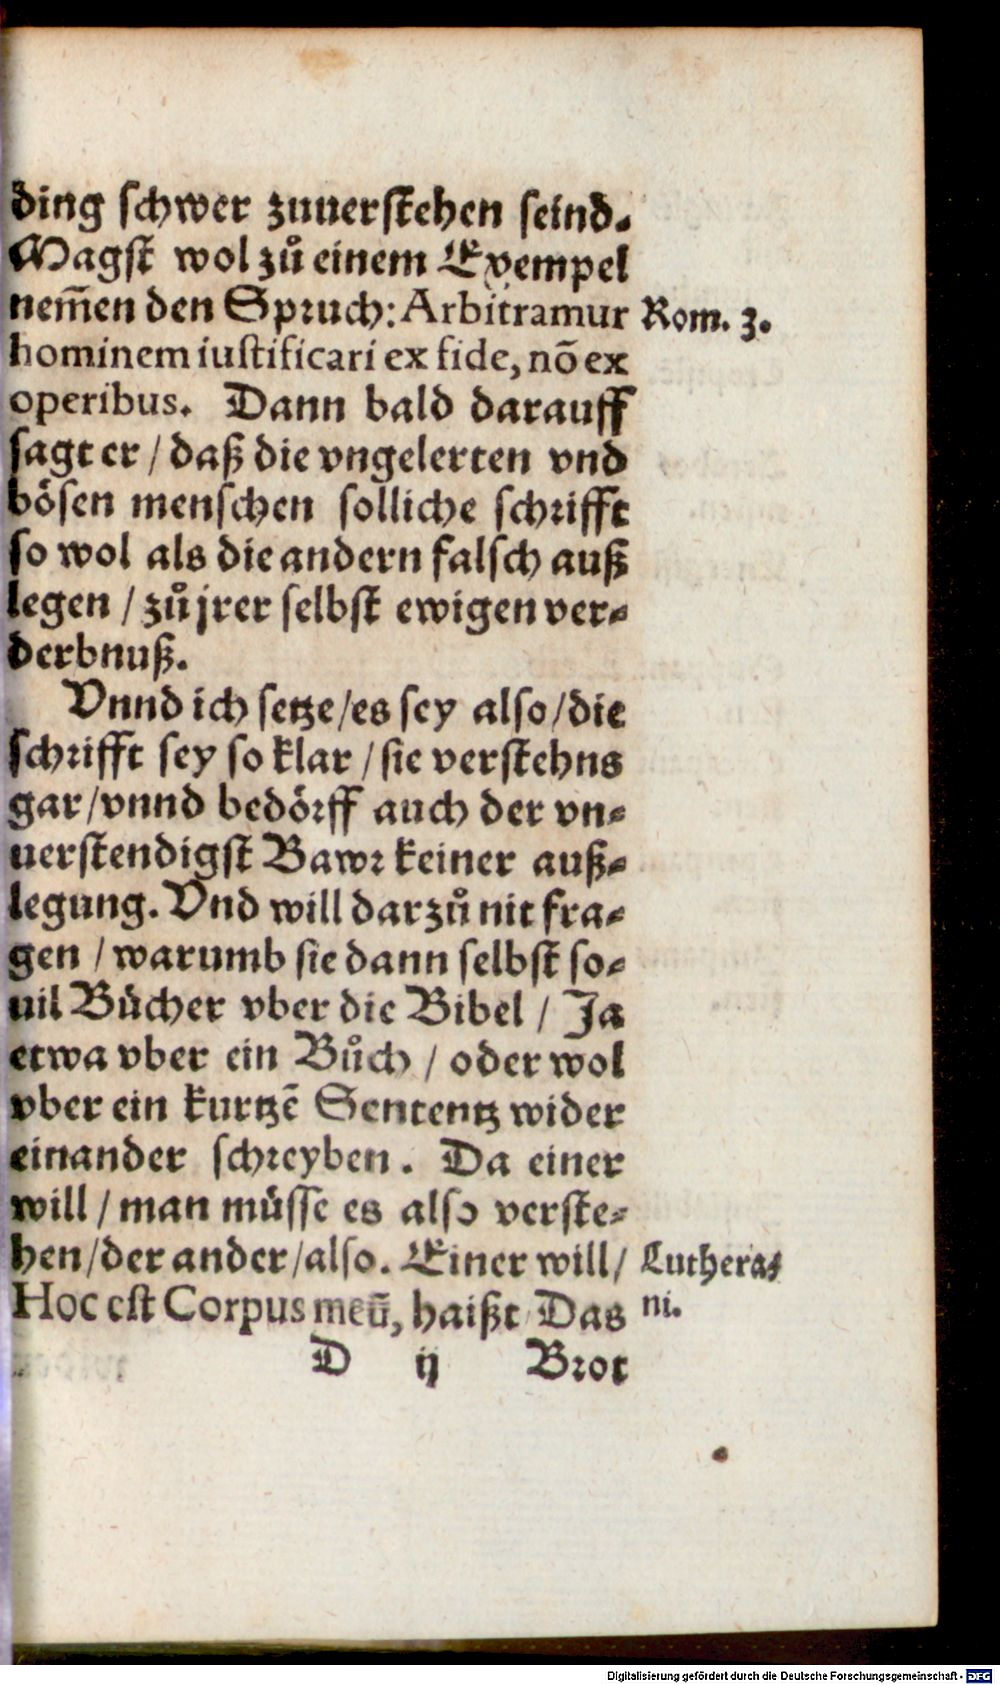 ding schwer zuuerstehen seind.
Magst wol zů einem Exempel
nem̃en den Spruch: Arbitramur
Rom. 3.
hominem iustificari ex fide, nõ ex
operibus. Dann bald darauff
sagt er / daß die vngelerten vnd
bösen menschen solliche schrifft
so wol als die andern falsch auß
legen / zů jrer selbst ewigen ver⸗
derbnuß.
Vnnd ich setze / es sey also / die
schrifft sey so klar / sie verstehns
gar / vnnd bedörff auch der vn⸗
uerstendigst Bawr keiner auß⸗
legung. Vnd will darzů nit fra⸗
gen / warumb sie dann selbst so⸗
uil Bücher vber die Bibel / Ja
etwa vber ein Bůch / oder wol
vber ein kurtzẽ Sententz wider
einander schreyben. Da einer
will / man müsse es also verste⸗
hen / der ander / also. Einer will /
Luthera⸗
ni.
Hoc est Corpus meũ, haißt Das
D ij Brot
Digitalisierung gefördert durch die Deutsche Forschungsgemeinschaft - DFG